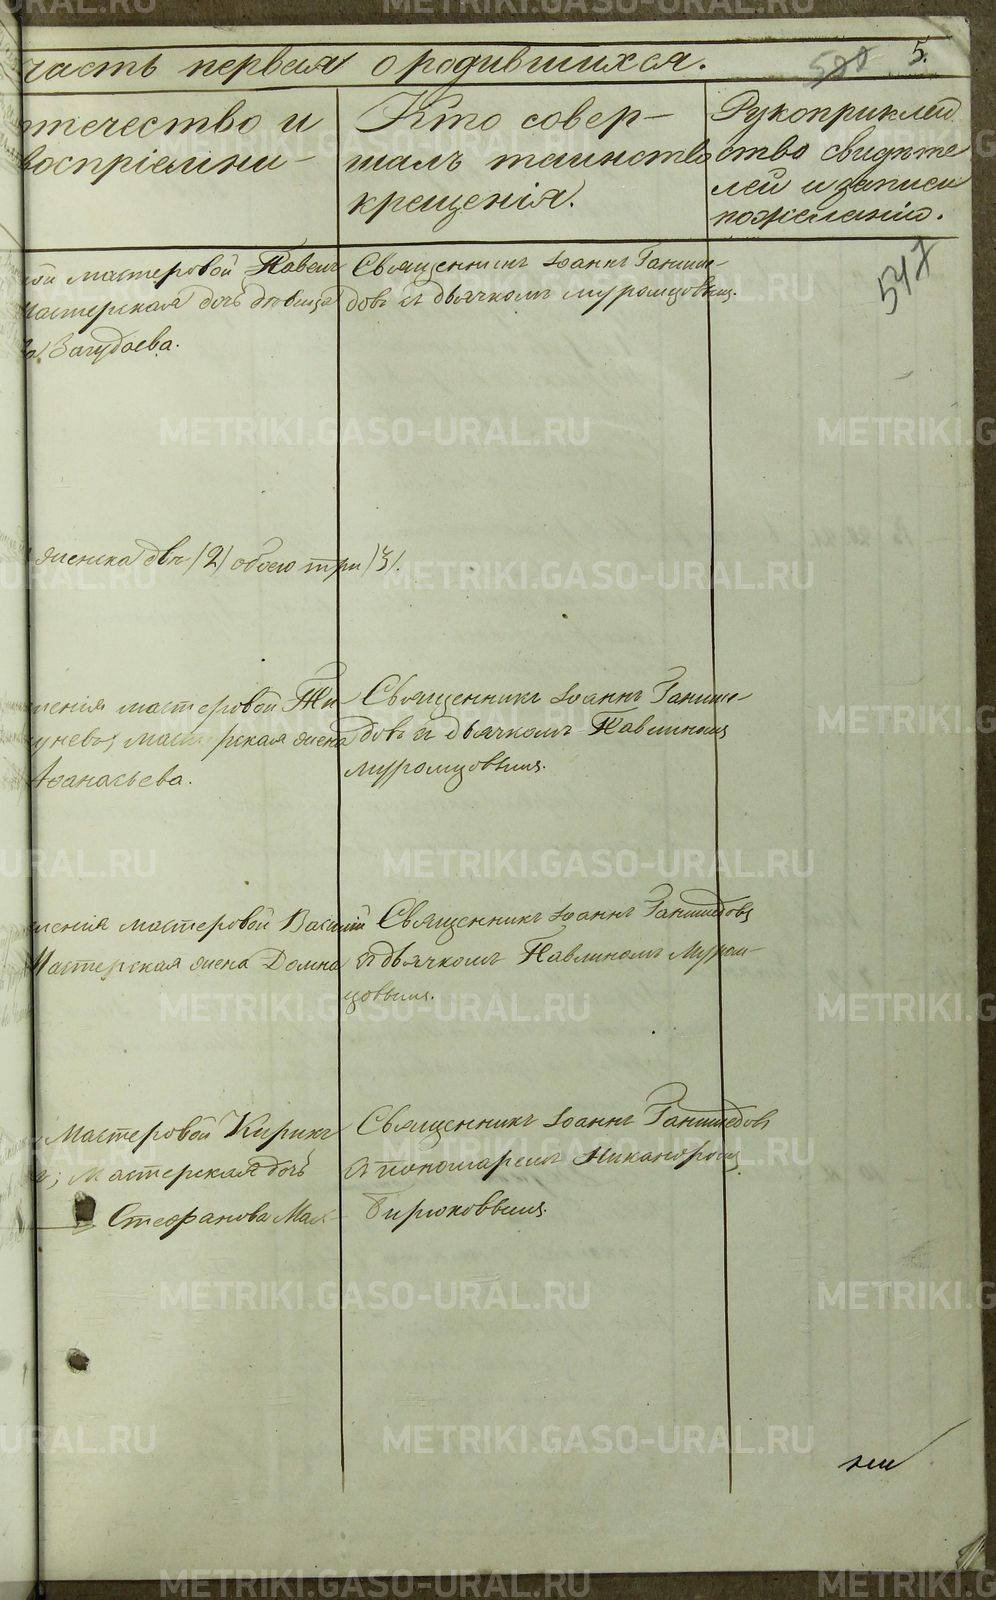 часть первая о родившихся.
5.
отечество и
воспріемни-
Кто совер-
шалъ таинство
крещенія.
Рукоприклад
ство свидѣте
лей и записи
по желанію.
547
мастеровой Павелъ
Мастерская дочь дѣвица
Вагудаева.
Священникъ Іоаннъ Ганише-
довъ и дьячкомъ Муромцовымъ.
женска двѣ /2/ обоего три /3/.
мастеровой Ти
мастерская жена
Аѳанасьева.
Священникъ Іоаннъ Ганише-
довъ и дьячкомъ Павлиномъ
Муромцовымъ.
мастеровой Василій
Мастерская жена Домна
Священникъ Іоаннъ Ганишедовъ
и дьячкомъ Павлиномъ Муром-
цовымъ.
Мастеровой Кирикъ
Мастерская дочь
Стефанова Мал-
Священникъ Іоаннъ Ганишедовъ
и пономаремъ Никандромъ
Бирюковымъ.
METRIKI.GASO-URAL.RU